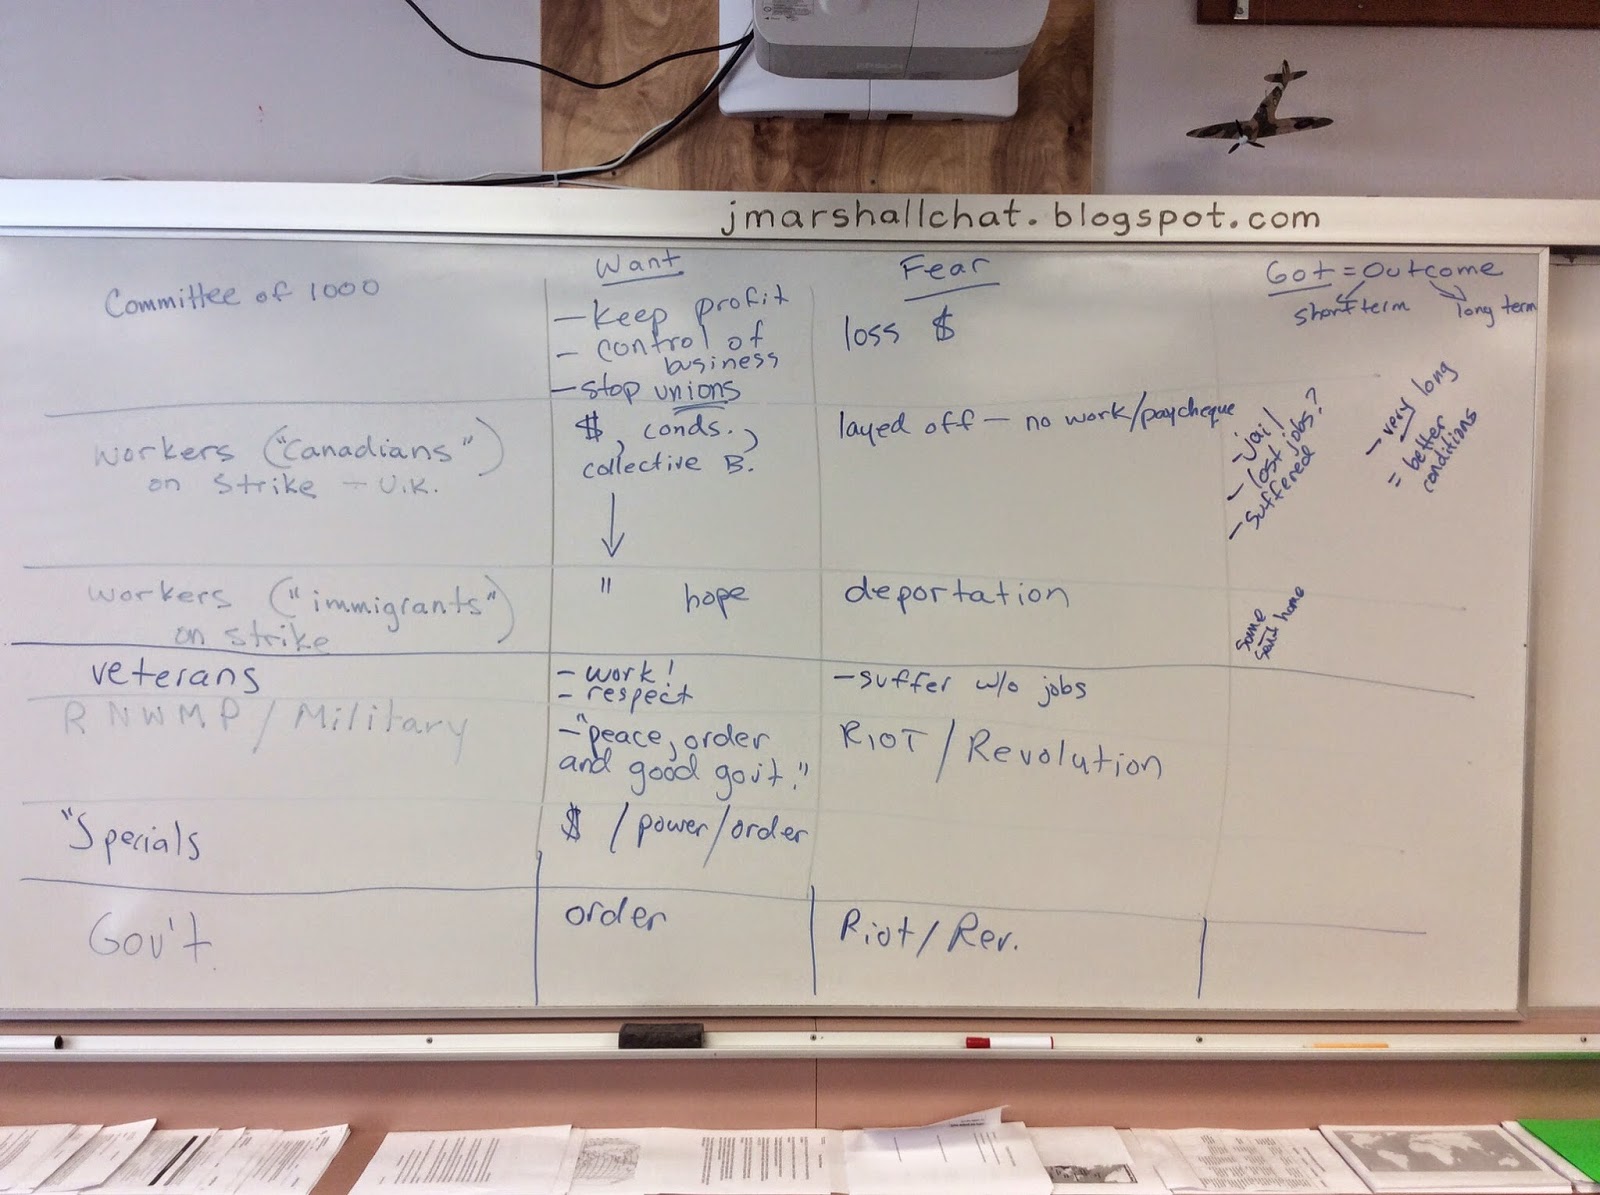 EPSON
jmarshallchat.blogspot.com
Want
Fear
Got = Outcome
short term
long term
Committee of 1000
- keep profit
- control of
business
- stop unions
loss $
workers ("Canadians")
on strike - U.K.
$, conds.,
collective B.
layed off - no work/paycheque
- jail
- lost jobs?
- suffered
- very long
= better
conditions
workers ("immigrants")
on strike
" hope
deportation
some
sent home
veterans
- work!
- respect
- suffer w/o jobs
RNWMP/Military
- "peace, order
and good gov't."
RIOT/Revolution
"Specials
$/power/order
Gov't.
order
Riot/Rev.